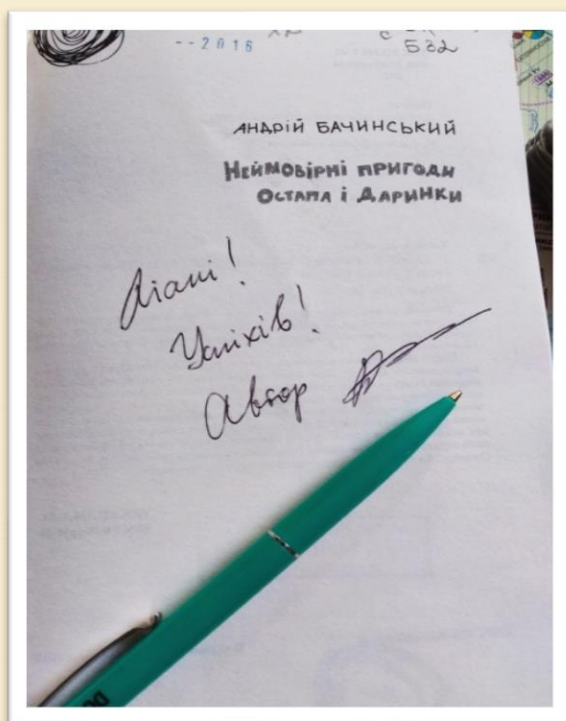 --2016
Б32
АНДРІЙ БАЧИНСЬКИЙ
НЕЙМОВІРНІ ПРИГОДИ
ОСТАПА І ДАРИНКИ
Ліані!
Успіхів!
Автор